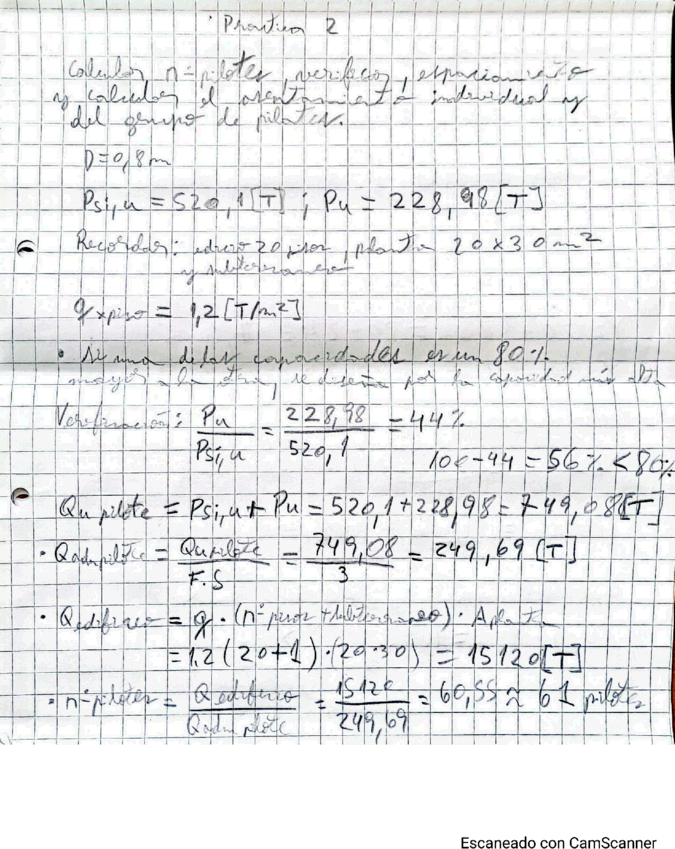 Practica 2
Calcular nº pilotes, verificar, espaciamiento
y calcular el asentamiento individual y
del grupo de pilotes.
D=0,8m
Psi,u = 520,1[T] ; Pu = 228,98[T]
Recordar: edificio 20 pisos, planta 20x30m2
y subterraneo
q xpiso = 1,2[T/m2]
• Si una de las capacidades es un 80%
mayor a la otra, se diseña por la capacidad más alta
Verificación: Pu/Psi,u = 228,98/520,1 = 44%
100-44 = 56% < 80%
Qu pilote = Psi,u + Pu = 520,1+228,98 = 749,08[T]
• Qadm pilote = Qu pilote/F.S = 749,08/3 = 249,69[T]
• Qedificio = q · (nº pisos + subterraneo) · A planta
= 1,2(20+1)·(20·30) = 15120[T]
• nº pilotes = Qedificio/Qadm pilote = 15120/249,69 = 60,55 ≈ 61 pilotes
Escaneado con CamScanner